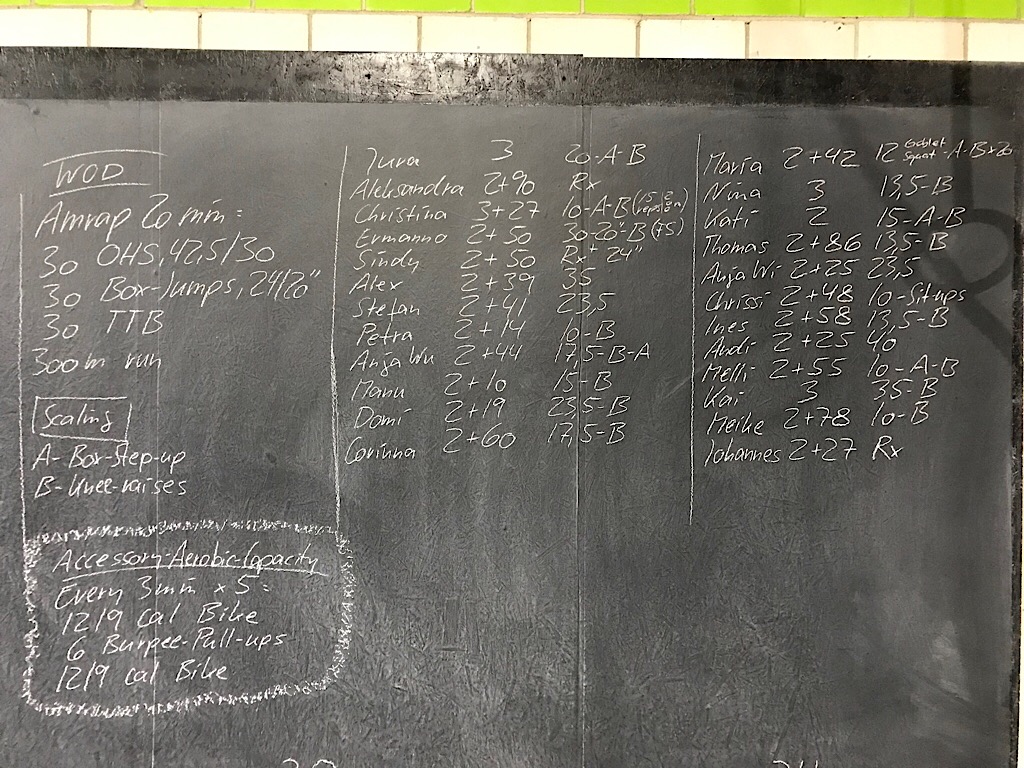 WOD
Amrap 20 min:
30 OHS, 42,5/30
30 Box-Jumps, 24/20"
30 TTB
300m run
Scaling
A- Box-Step-up
B- Knee-raises
Accessory-Aerobic-Capacity
Every 3min x 5:
12/9 Cal Bike
6 Burpee-Pull-ups
12/9 Cal Bike
Jura 3 20-A-B
Aleksandra 2+90 Rx
Christina 3+27 10-A-B (15
Ermanno 2+50 30-20"-B (75)
Sindy 2+50 Rx+ 24"
Alex 2+39 35
Stefan 2+41 23,5
Petra 2+14 10-B
Anja Wu 2+44 17,5-B-A
Manu 2+10 15-B
Domi 2+19 23,5-B
Corinna 2+60 17,5-B
Maria 2+42 12 Goblet Squat-A-B x 20
Nina 3 13,5-B
Kati 2 15-A-B
Thomas 2+86 13,5-B
Anja Wi 2+25 23,5
Chrissi 2+48 10-Situps
Ines 2+58 13,5-B
Andi 2+25 40
Melli 2+55 10-A-B
Kai 3 35-B
Heike 2+78 10-B
Johannes 2+27 Rx